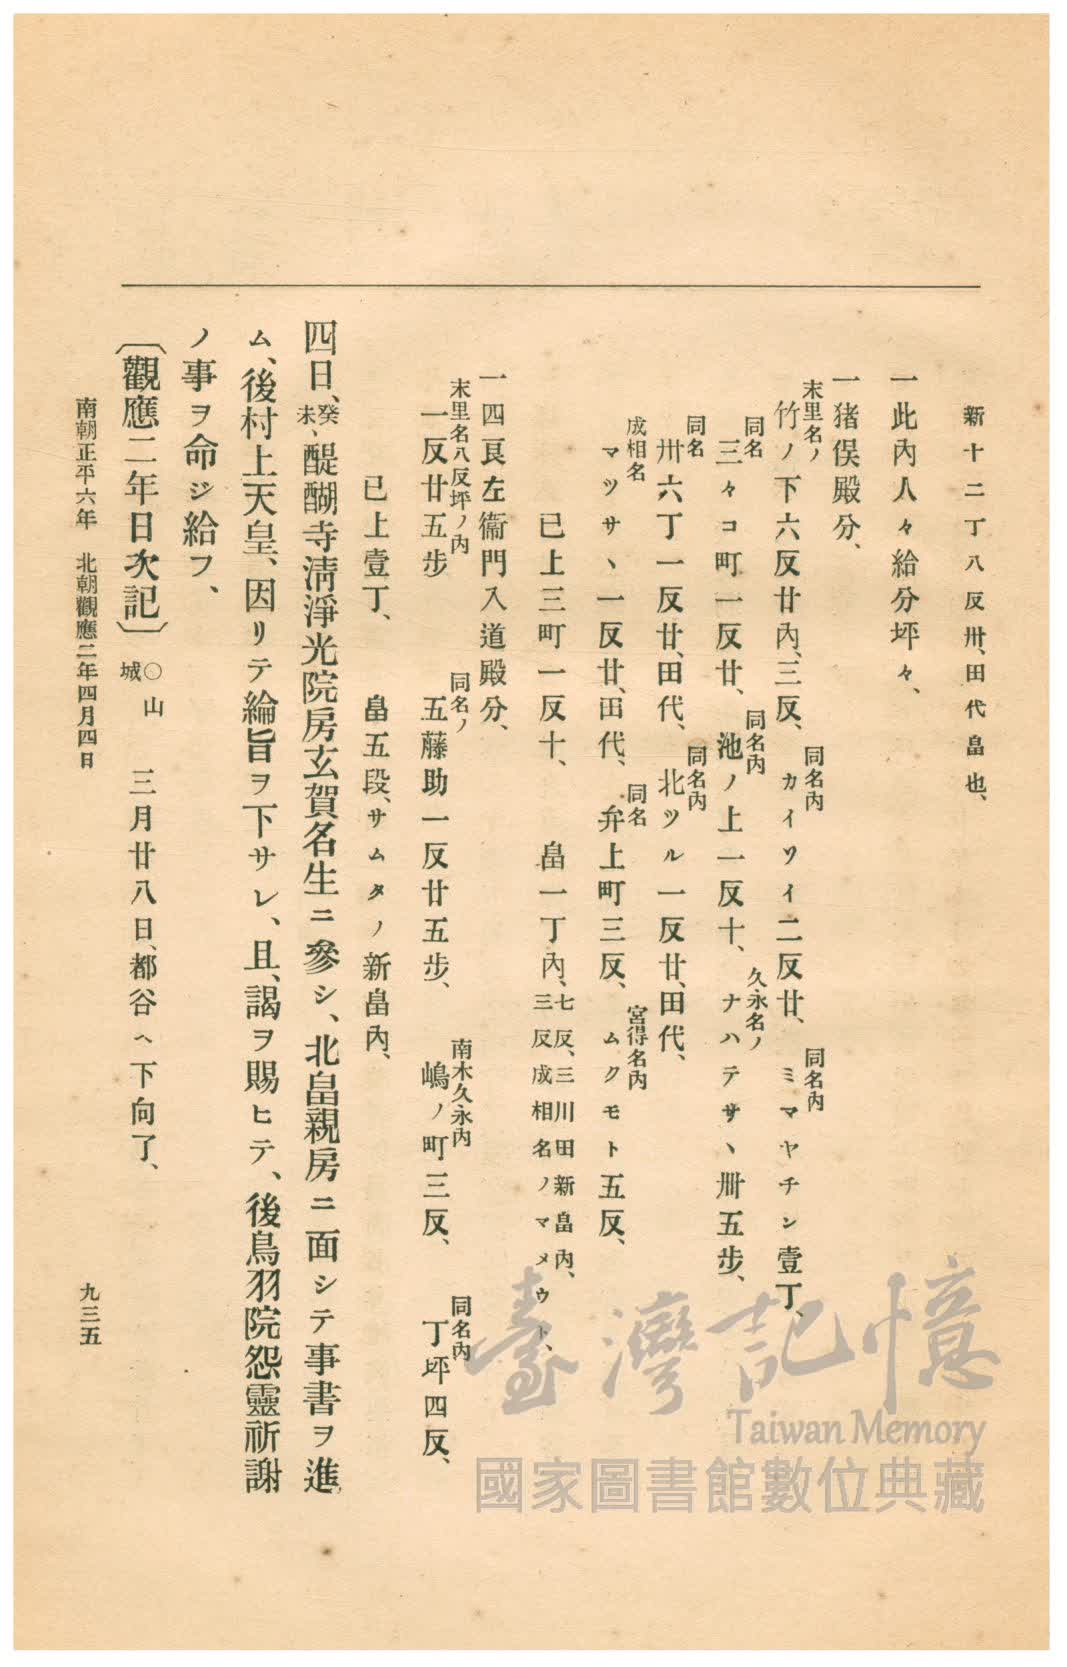 新十二丁八反卅、田代畠也、
一此內人々給分坪々、
一猪俣殿分、
末里名ノ 同名內 同名內
竹ノ下六反廿內、三反、 カイソイ二反廿、 ミマヤチン壹丁、
同名 同名內 久永名ノ
三々コ町一反廿、池ノ上一反十、ナハテサヽ卌五步、
同名 同名內
卅六丁一反廿、田代、北ツル一反廿、田代、
成相名 同名 宮得名內
マツサヽ一反廿、田代、弁上町三反、ムクモト五反、
已上三町一反十、 畠一丁內、七反、三川田新畠內、
三反成相名ノマメウト、
一四良左衞門入道殿分、
末里名八反坪ノ內 同名ノ 南木久永內 同名內
一反廿五步 五藤助一反廿五步、 嶋ノ町三反、 丁坪四反、
已上壹丁、 畠五段、サムタノ新畠內、
四日、癸未、醍醐寺淸淨光院房玄賀名生ニ參シ、北畠親房ニ面シテ事書ヲ進
ム、後村上天皇、因リテ綸旨ヲ下サレ、且、謁ヲ賜ヒテ、後鳥羽院怨靈祈謝
ノ事ヲ命ジ給フ、
〔觀應二年日次記〕 ○山城 三月廿八日、都谷ヘ下向了、
南朝正平六年 北朝觀應二年四月四日
九三五
臺灣記憶
Taiwan Memory
國家圖書館數位典藏